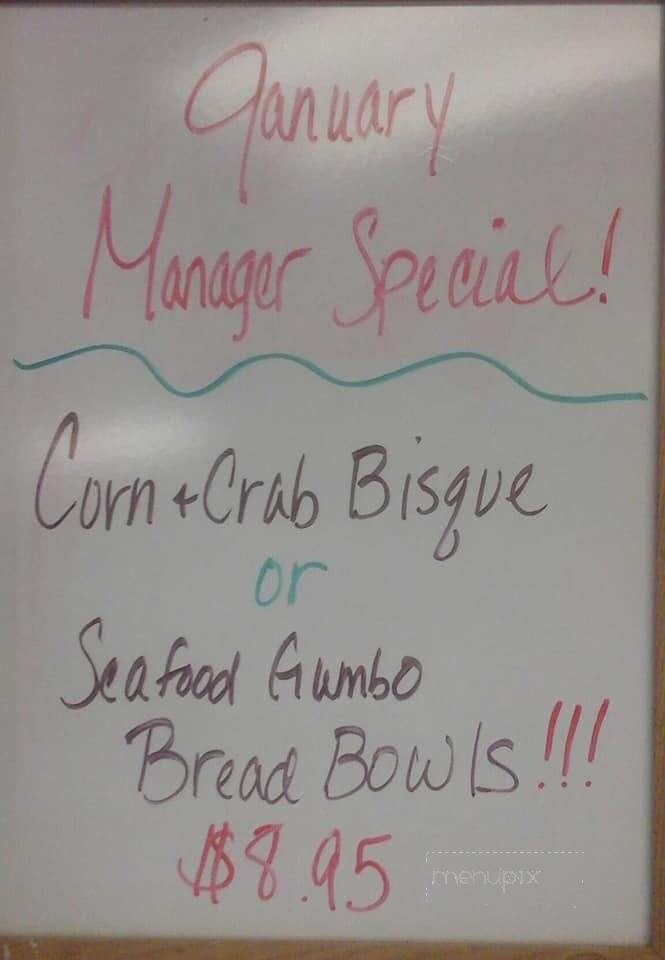 January
Manager Special!
Corn + Crab Bisque
or
Seafood Gumbo
Bread Bowls!!!
$8.95
menupix